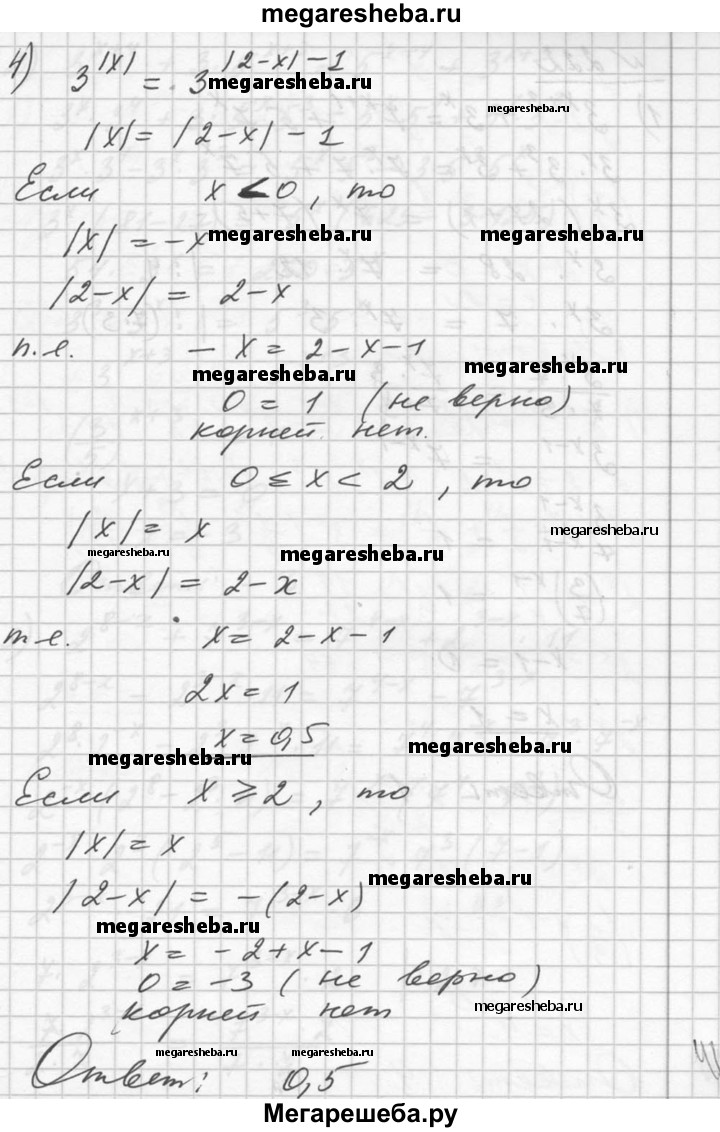 megaresheba.ru
4) 3^|x| = 3^|2-x|-1
megaresheba.ru
megaresheba.ru
|x| = |2-x| - 1
Если x < 0, то
|x| = -x
megaresheba.ru megaresheba.ru
|2-x| = 2-x
т.е. - x = 2-x-1
megaresheba.ru megaresheba.ru
0 = 1 (не верно)
корней нет.
Если 0 ≤ x < 2, то
|x| = x
megaresheba.ru
megaresheba.ru megaresheba.ru
|2-x| = 2-x
т.е. x = 2-x-1
2x = 1
x = 0,5
megaresheba.ru megaresheba.ru
Если x ⩾ 2, то
|x| = x
|2-x| = -(2-x)
megaresheba.ru
megaresheba.ru
x = -2+x-1
0 = -3 (не верно)
корней нет
megaresheba.ru
megaresheba.ru megaresheba.ru
Ответ: 0,5
Мегарешеба.ру